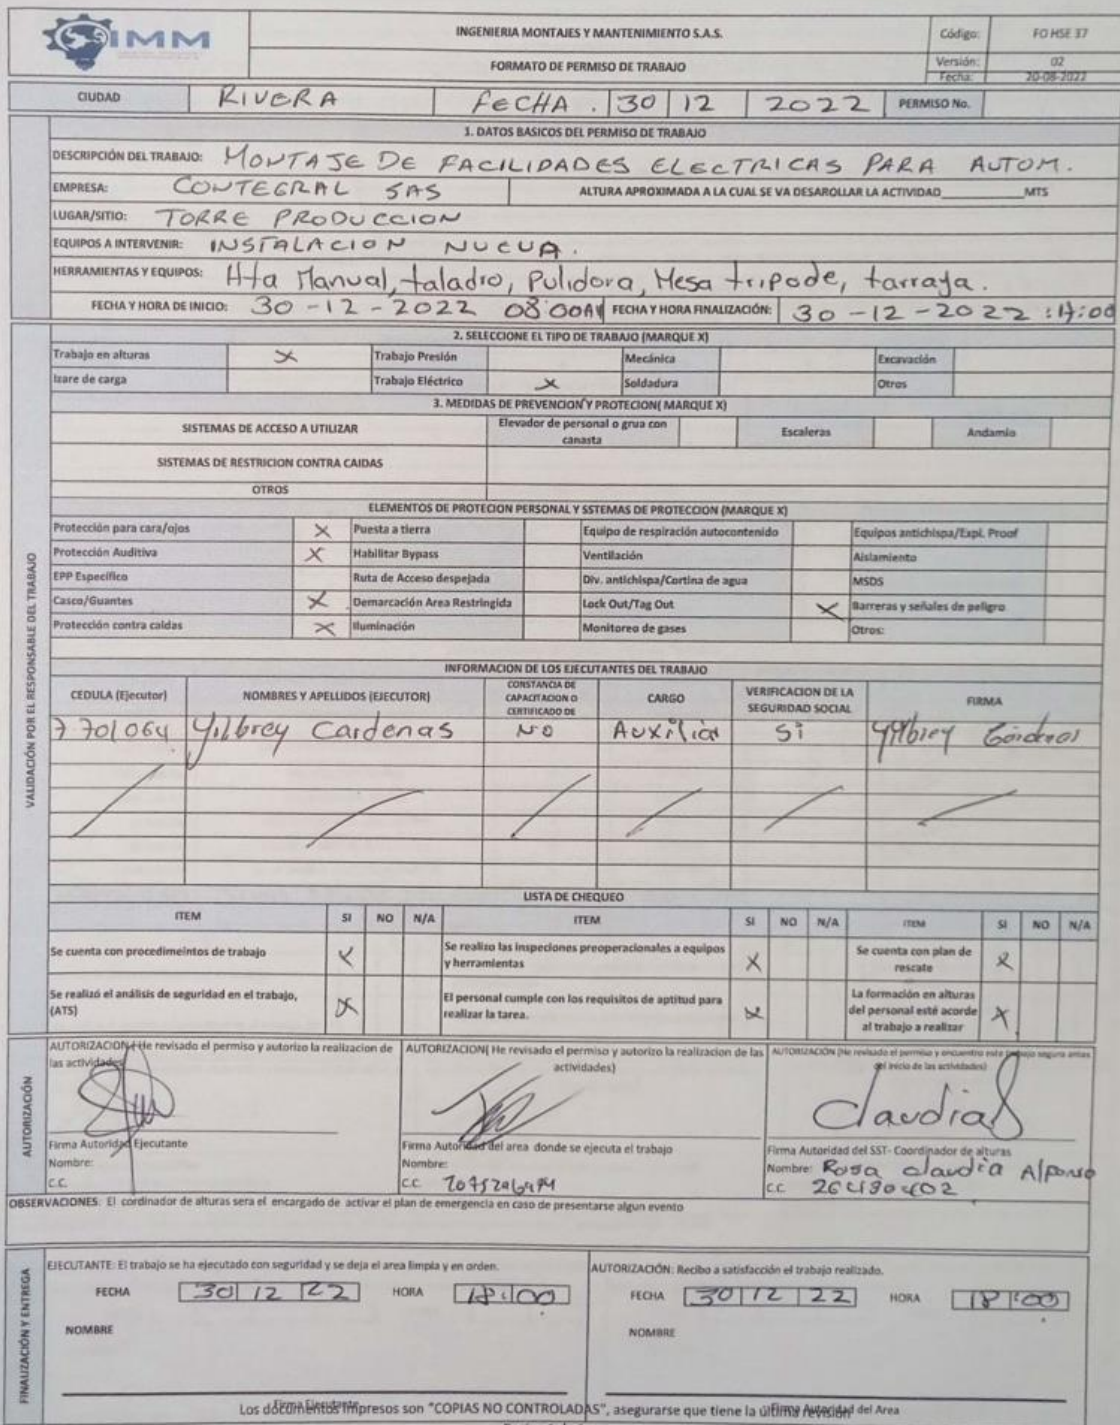 SIMM
INGENIERIA MONTAJES Y MANTENIMIENTO S.A.S.
Código: FO HSE 37
FORMATO DE PERMISO DE TRABAJO
Versión: 02
Fecha: 20-08-2022
CIUDAD RIVERA FECHA . 30 12 2022 PERMISO No.
1. DATOS BASICOS DEL PERMISO DE TRABAJO
DESCRIPCIÓN DEL TRABAJO: MONTAJE DE FACILIDADES ELECTRICAS PARA AUTOM.
EMPRESA: CONTEGRAL SAS ALTURA APROXIMADA A LA CUAL SE VA DESAROLLAR LA ACTIVIDAD________MTS
LUGAR/SITIO: TORRE PRODUCCION
EQUIPOS A INTERVENIR: INSTALACION NUEVA.
HERRAMIENTAS Y EQUIPOS: Hta Manual, taladro, Pulidora, Mesa tripode, tarraja.
FECHA Y HORA DE INICIO: 30-12-2022 08:00AM FECHA Y HORA FINALIZACIÓN: 30-12-2022
2. SELECCIONE EL TIPO DE TRABAJO (MARQUE X)
Trabajo en alturas X Trabajo Presión Mecánica Excavación
Izare de carga Trabajo Eléctrico X Soldadura Otros
3. MEDIDAS DE PREVENCION Y PROTECION( MARQUE X)
SISTEMAS DE ACCESO A UTILIZAR Elevador de personal o grua con canasta Escaleras Andamio
SISTEMAS DE RESTRICION CONTRA CAIDAS
OTROS
ELEMENTOS DE PROTECION PERSONAL Y SSTEMAS DE PROTECCION (MARQUE X)
Protección para cara/ojos X Puesta a tierra Equipo de respiración autocontenido Equipos antichispa/Expl. Proof
Protección Auditiva X Habilitar Bypass Ventilación Aislamiento
EPP Específico Ruta de Acceso despejada Div. antichispa/Cortina de agua MSDS
Casco/Guantes X Demarcación Area Restringida Lock Out/Tag Out X Barreras y señales de peligro
Protección contra caidas X Iluminación Monitoreo de gases Otros:
VALIDACIÓN POR EL RESPONSABLE DEL TRABAJO
INFORMACION DE LOS EJECUTANTES DEL TRABAJO
CEDULA (Ejecutor) NOMBRES Y APELLIDOS (EJECUTOR) CONSTANCIA DE CAPACITACION O CERTIFICADO DE CARGO VERIFICACION DE LA SEGURIDAD SOCIAL FIRMA
7701064 Yilbrey Cardenas NO Auxiliar Si Yilbrey Cardenas
LISTA DE CHEQUEO
ITEM SI NO N/A ITEM SI NO N/A ITEM SI NO N/A
Se cuenta con procedimeintos de trabajo X Se realizo las inspeciones preoperacionales a equipos y herramientas X Se cuenta con plan de rescate X
Se realizó el análisis de seguridad en el trabajo, (ATS) X El personal cumple con los requisitos de aptitud para realizar la tarea. X La formación en alturas del personal esté acorde al trabajo a realizar X
AUTORIZACIÓN
AUTORIZACION( He revisado el permiso y autorizo la realizacion de las actividades)
AUTORIZACION( He revisado el permiso y autorizo la realizacion de las actividades)
AUTORIZACIÓN (He revisado el permiso y encuentro este trabajo seguro antes del inicio de las actividades)
Claudia
Firma Autoridad Ejecutante
Nombre:
C.C.
Firma Autoridad del area donde se ejecuta el trabajo
Nombre:
C.C.
Firma Autoridad del SST- Coordinador de alturas
Nombre: Rosa claudia Alfonso
C.C
OBSERVACIONES: El cordinador de alturas sera el encargado de activar el plan de emergencia en caso de presentarse algun evento
FINALIZACIÓN Y ENTREGA
EJECUTANTE: El trabajo se ha ejecutado con seguridad y se deja el area limpia y en orden.
FECHA 30 12 22 HORA 18:00
NOMBRE
Firma Ejecutante
AUTORIZACIÓN: Recibo a satisfacción el trabajo realizado.
FECHA 30 12 22 HORA 18:00
NOMBRE
Firma Autoridad del Area
Los documentos impresos son "COPIAS NO CONTROLADAS", asegurarse que tiene la última revisión